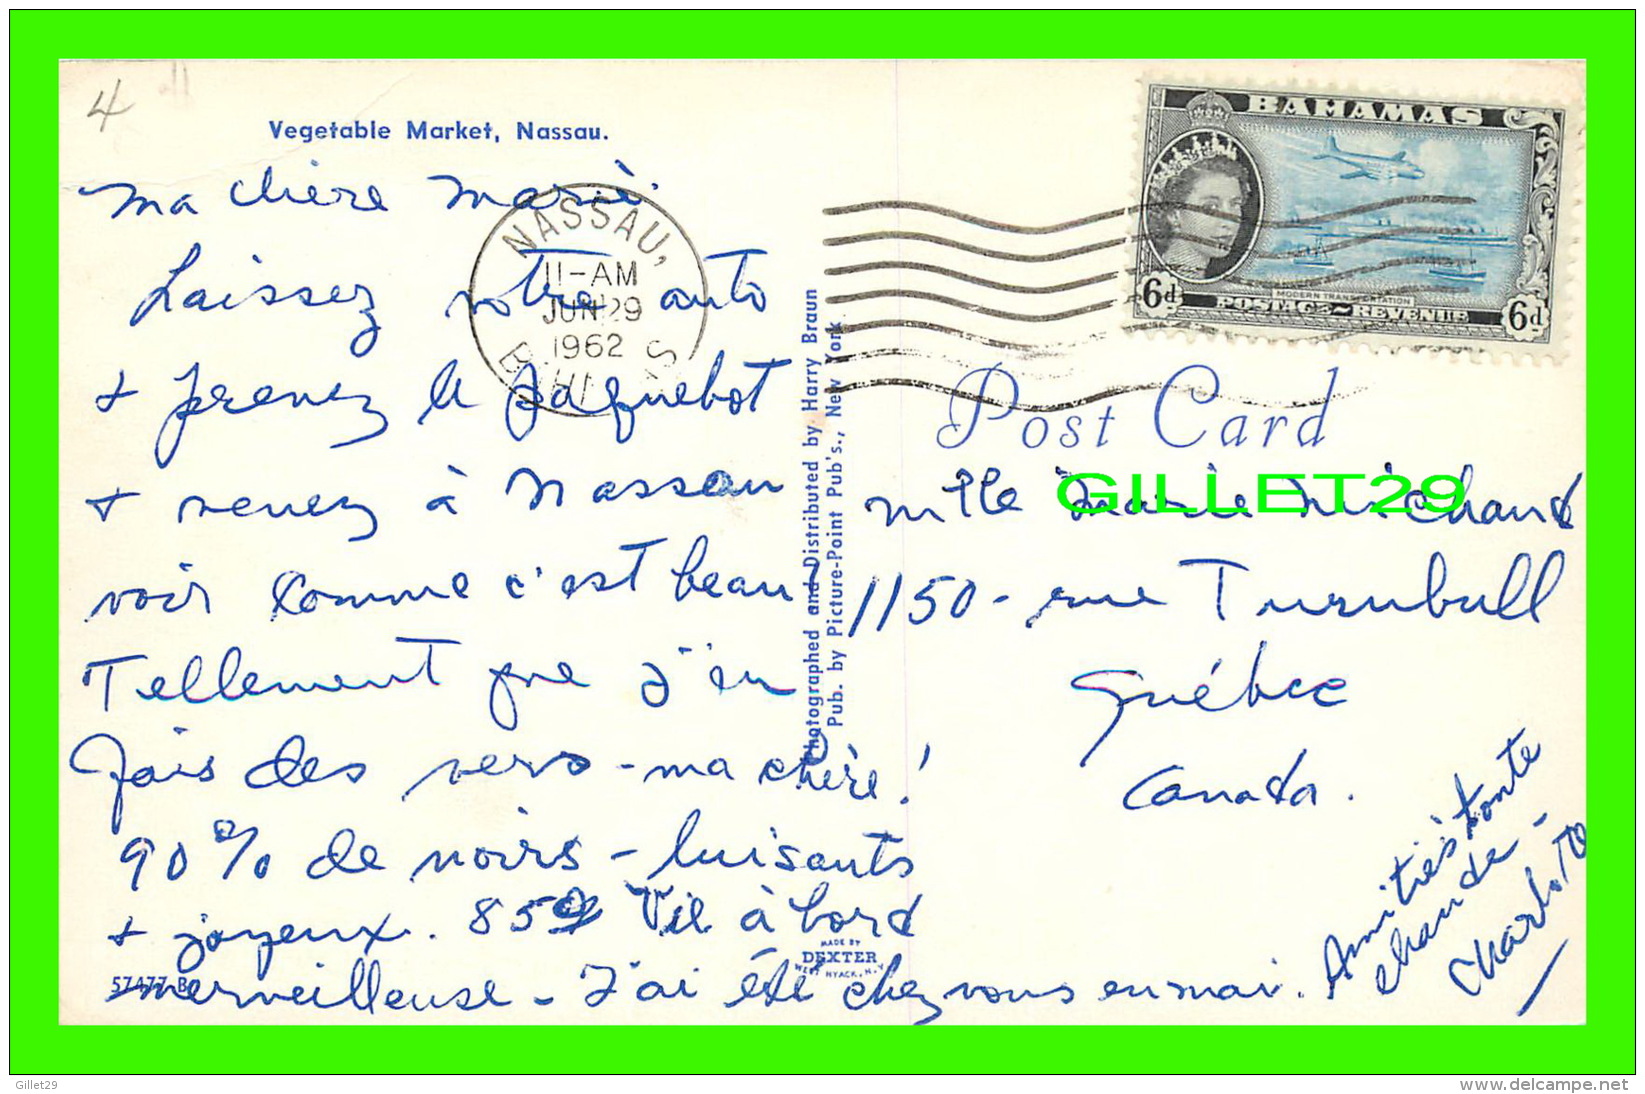 4
Vegetable Market, Nassau.
Ma chère Marie.
Laissez votre auto
+ prenez le paquebot
+ venez à Nassau
voir comme c'est beau
Tellement que j'en
fais des vers - ma chère!
90% de noirs - luisants
+ joyeux. 85° Vie à bord
merveilleuse - J'ai été chez vous en mai.
57477 B
NASSAU,
11-AM
JUN 29
1962
BAHAMAS
Photographed and Distributed by Harry Braun
Pub. by Picture-Point Pub's., New York
MADE BY
DEXTER
WEST NYACK, N.Y.
BAHAMAS
6d
MODERN TRANSPORTATION
POSTAGE ~ REVENUE
6d
Post Card
GILLET29
Mlle Marie Michaud
1150 - rue Turnbull
Québec
Canada.
Amitiés toute
chaude -
Gillet29
www.delcampe.net